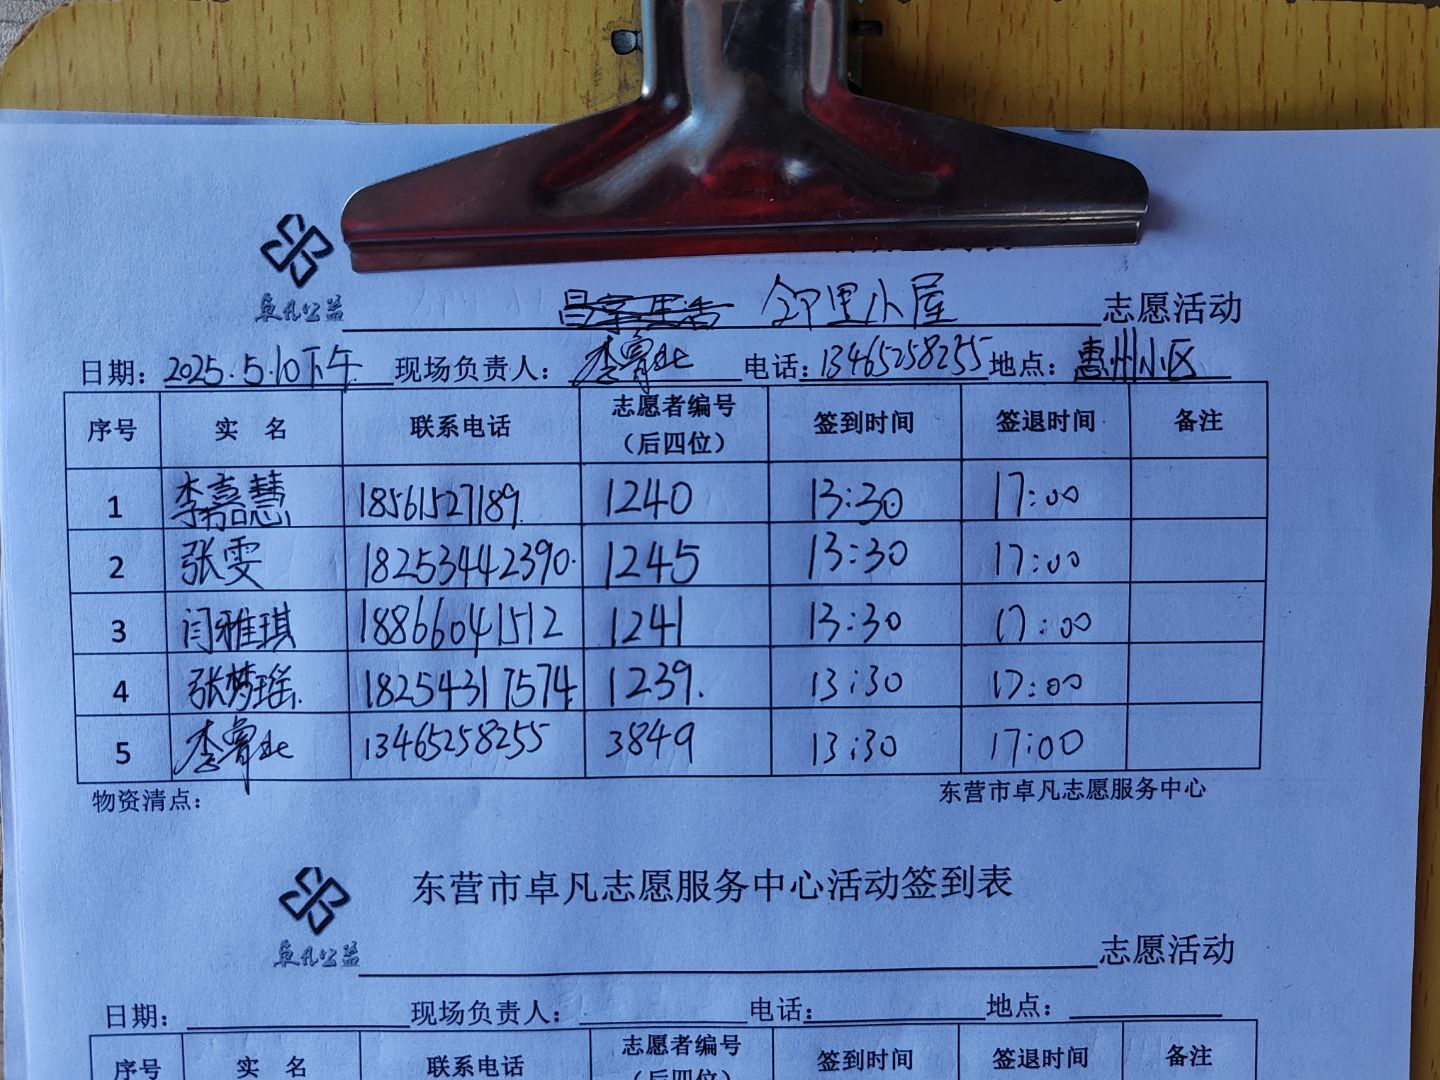 卓凡公益
邻里小屋 志愿活动
日期：2025.5.10下午 现场负责人：李鲁北 电话：13465258255 地点：惠州小区
序号 实 名 联系电话 志愿者编号（后四位） 签到时间 签退时间 备注
1 李嘉慧 18561527189 1240 13:30 17:00
2 张雯 18253442390 1245 13:30 17:00
3 闫雅琪 18866041512 1241 13:30 17:00
4 张梦瑶 18254317574 1239. 13:30 17:00
5 李鲁北 13465258255 3849 13:30 17:00
物资清点： 东营市卓凡志愿服务中心
东营市卓凡志愿服务中心活动签到表
卓凡公益
志愿活动
日期： 现场负责人： 电话： 地点：
序号 实 名 联系电话 志愿者编号（后四位） 签到时间 签退时间 备注